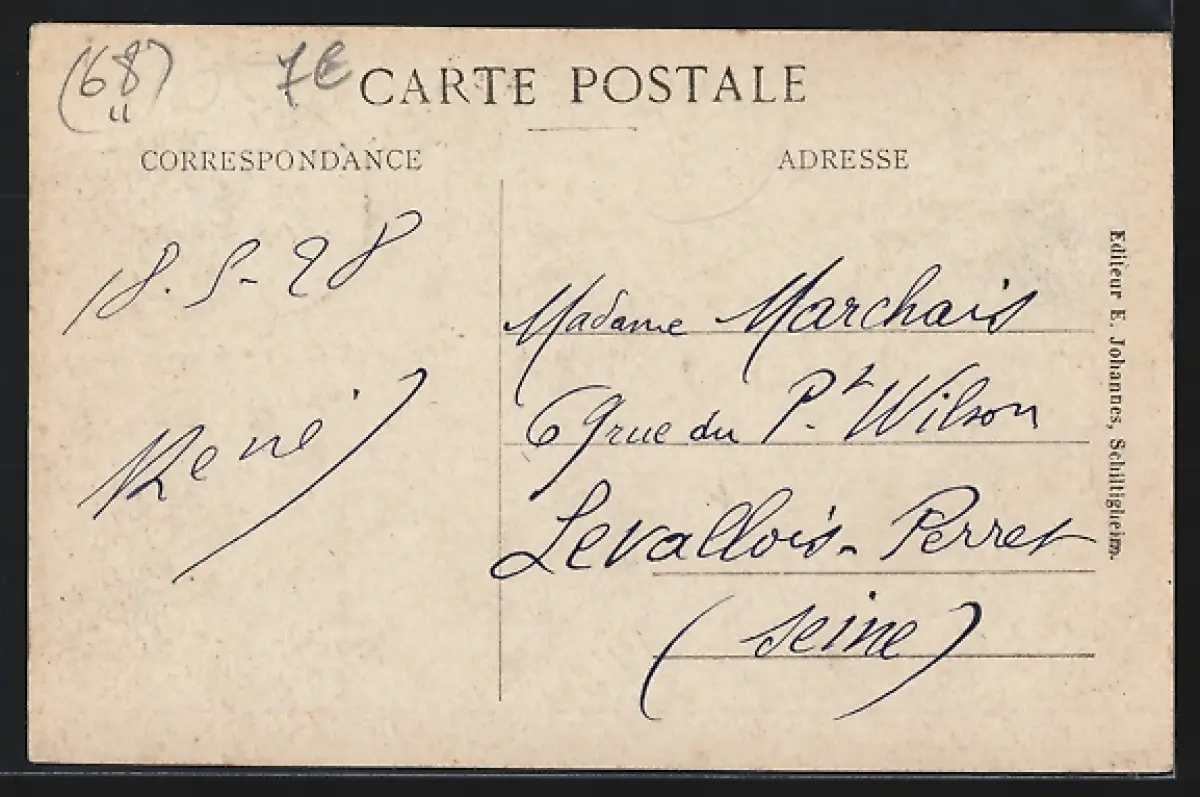 (68)
"
7€
CARTE POSTALE
CORRESPONDANCE
ADRESSE
18.5-28
René
Madame Marchais
69 rue du Pt Wilson
Levallois-Perret
(seine)
Editeur E. Johannes, Schiltigheim.